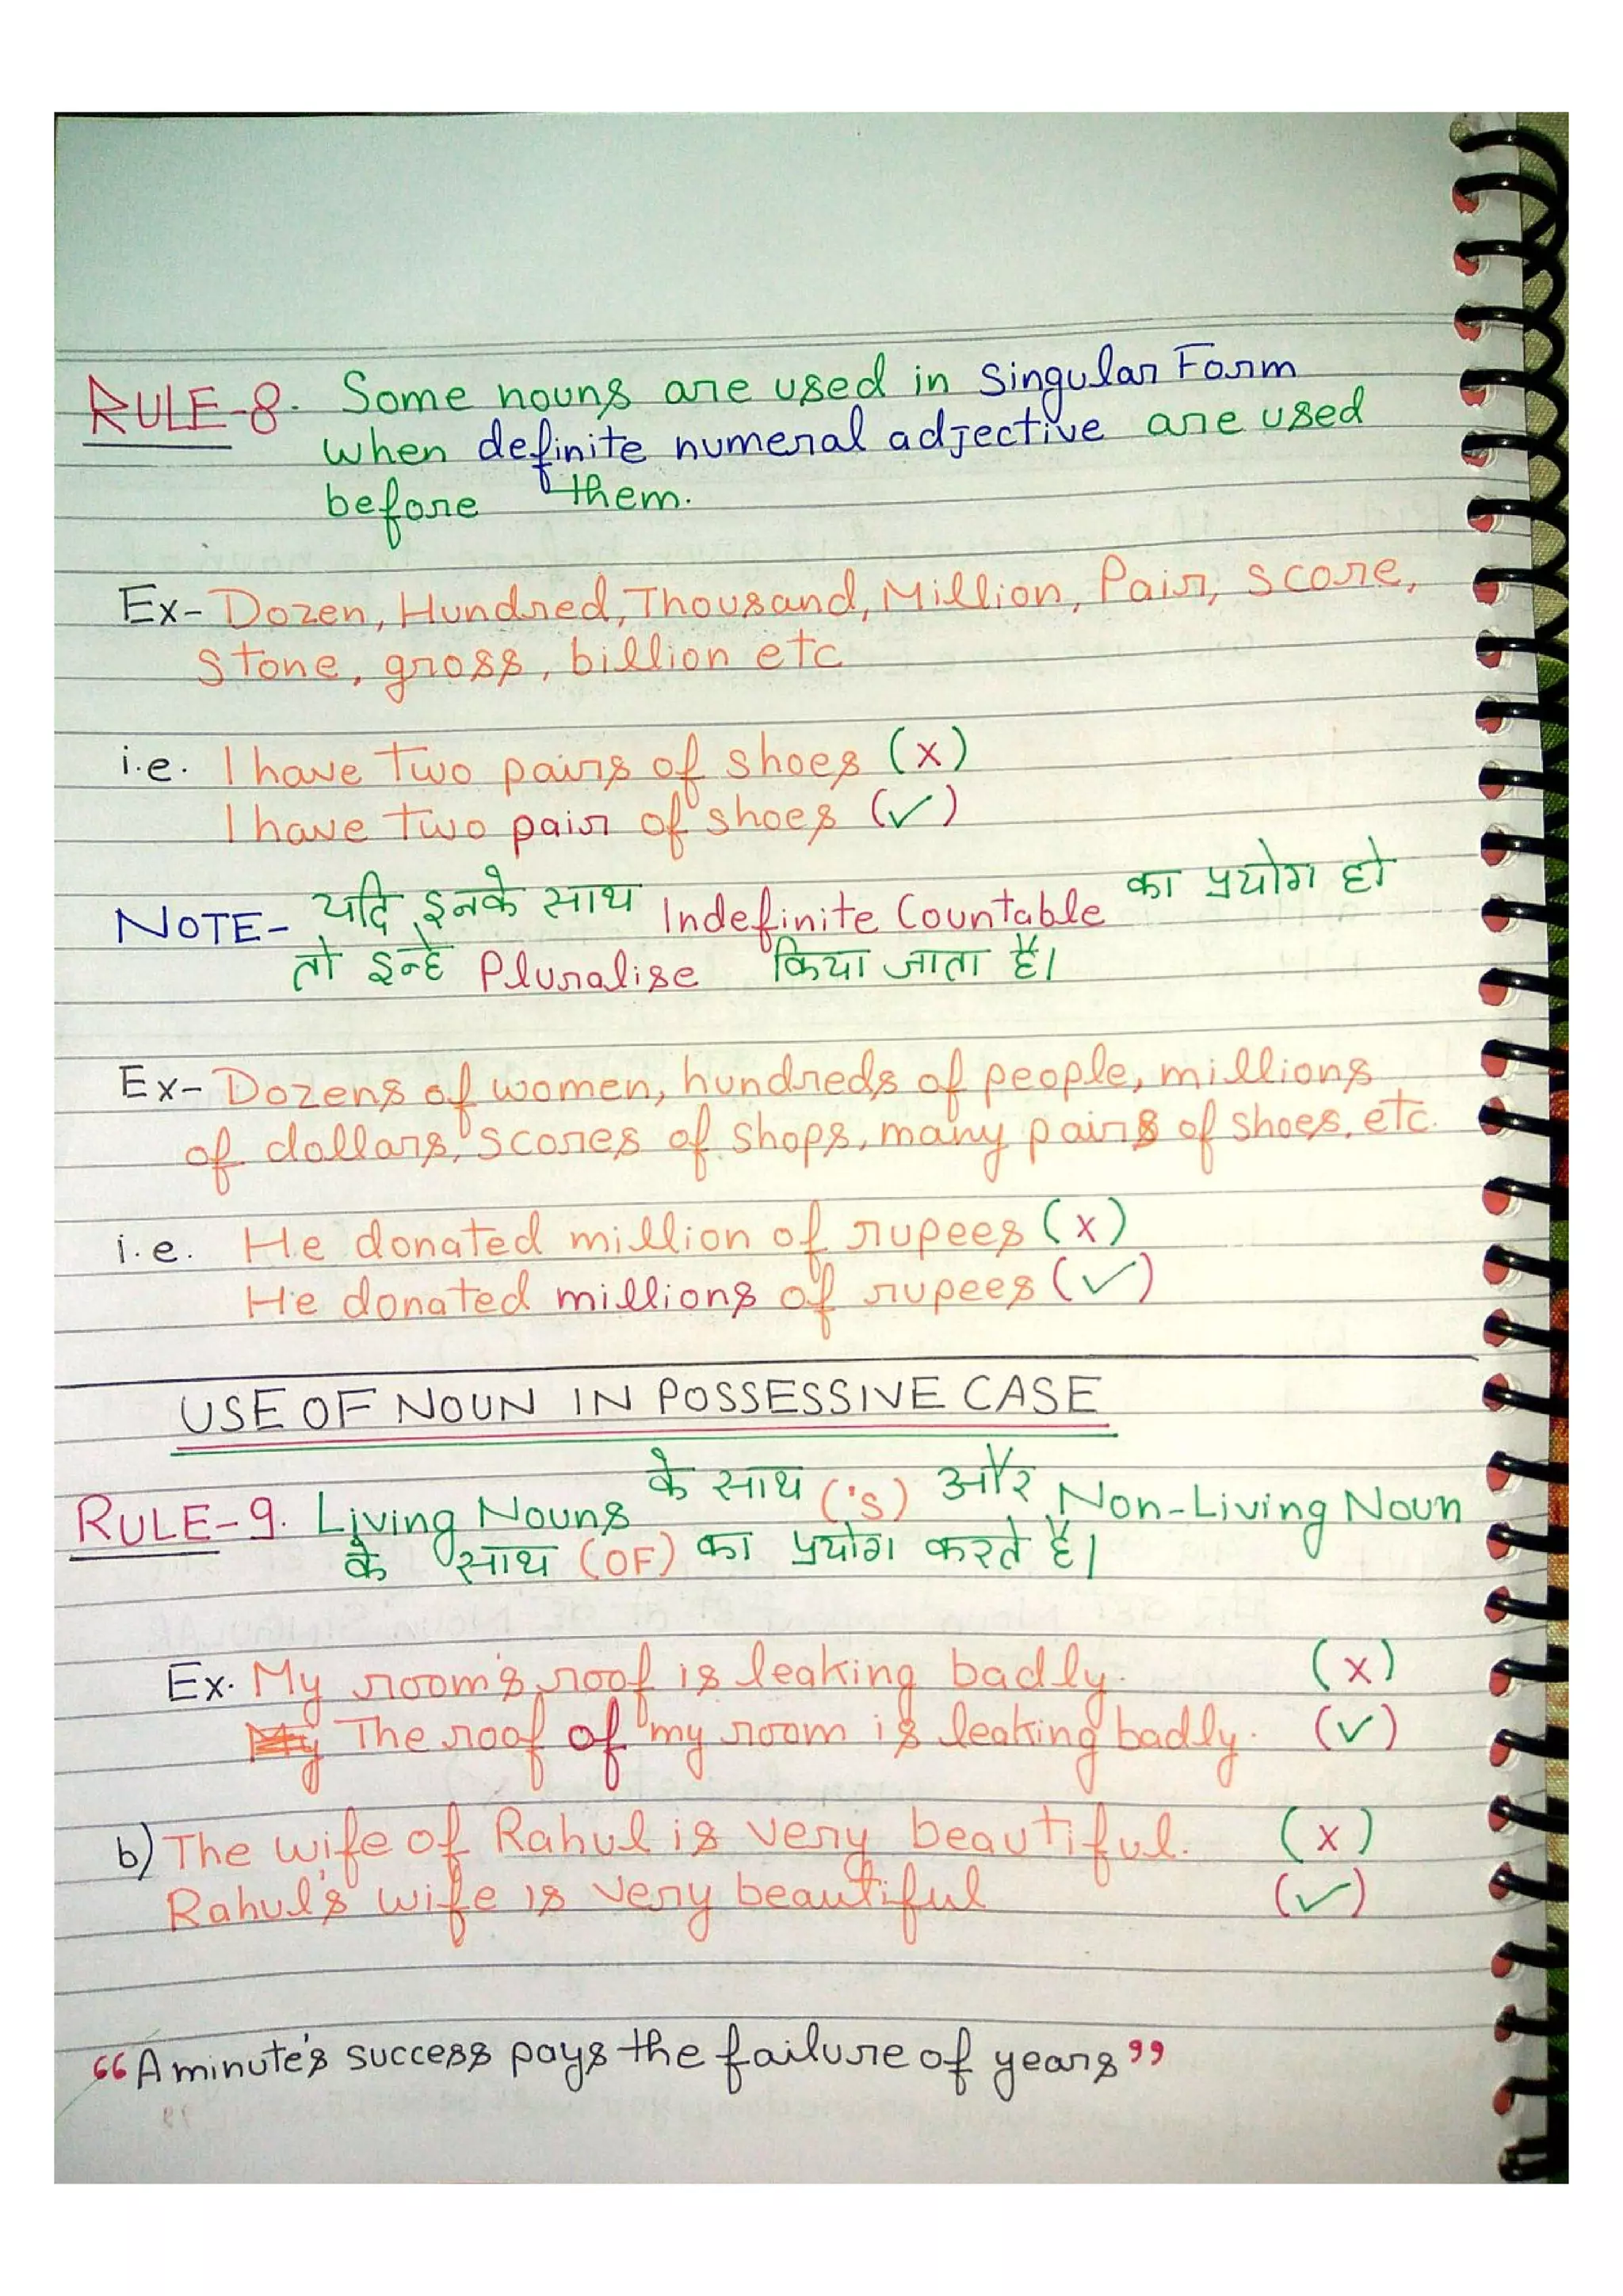 RULE-8. Some nouns are used in Singular Form
when definite numeral adjective are used
before them.
Ex- Dozen, Hundred, Thousand, Million, Pair, score,
Stone, gross, billion etc
i.e. I have two pairs of shoes (x)
I have two pair of shoes (✓)
NOTE- यदि इनके साथ Indefinite Countable का प्रयोग हो
तो इन्हें Pluralise किया जाता है।
Ex- Dozens of women, hundreds of people, millions
of dollars, scores of shops, many pairs of shoes, etc.
i.e. He donated million of rupees (x)
He donated millions of rupees (✓)
USE OF NOUN IN POSSESSIVE CASE
RULE-9. Living Nouns के साथ ('s) और Non-Living Noun
के साथ (OF) का प्रयोग करते हैं।
Ex. My room's roof is leaking badly. (x)
My The roof of my room is leaking badly. (✓)
b) The wife of Rahul is very beautiful. (x)
Rahul's wife is very beautiful (✓)
“A minute's success pays the failure of years”